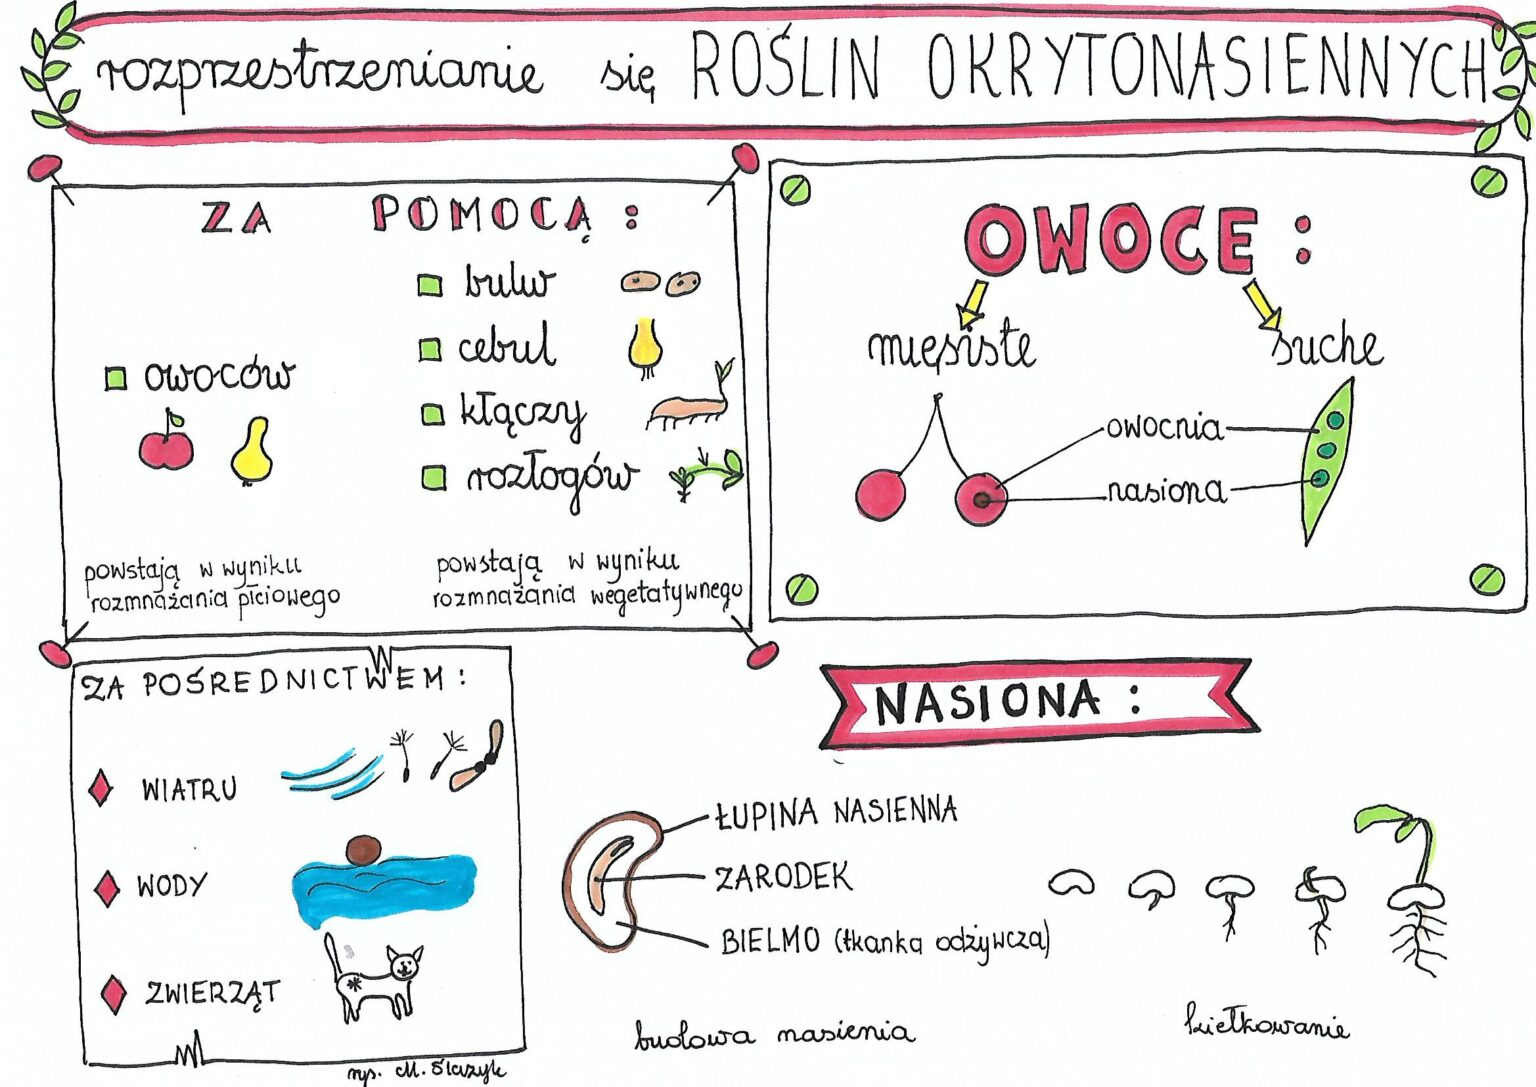 rozprzestrzenianie się ROŚLIN OKRYTONASIENNYCH
ZA POMOCĄ:
owoców
powstają w wyniku
rozmnażania płciowego
bulw
cebul
kłączy
rozłogów
powstają w wyniku
rozmnażania wegetatywnego
OWOCE:
mięsiste
suche
owocnia
nasiona
ZA POŚREDNICTWEM:
WIATRU
WODY
ZWIERZĄT
rys. M.
NASIONA:
ŁUPINA NASIENNA
ZARODEK
BIELMO (tkanka odżywcza)
budowa nasienia
kiełkowanie